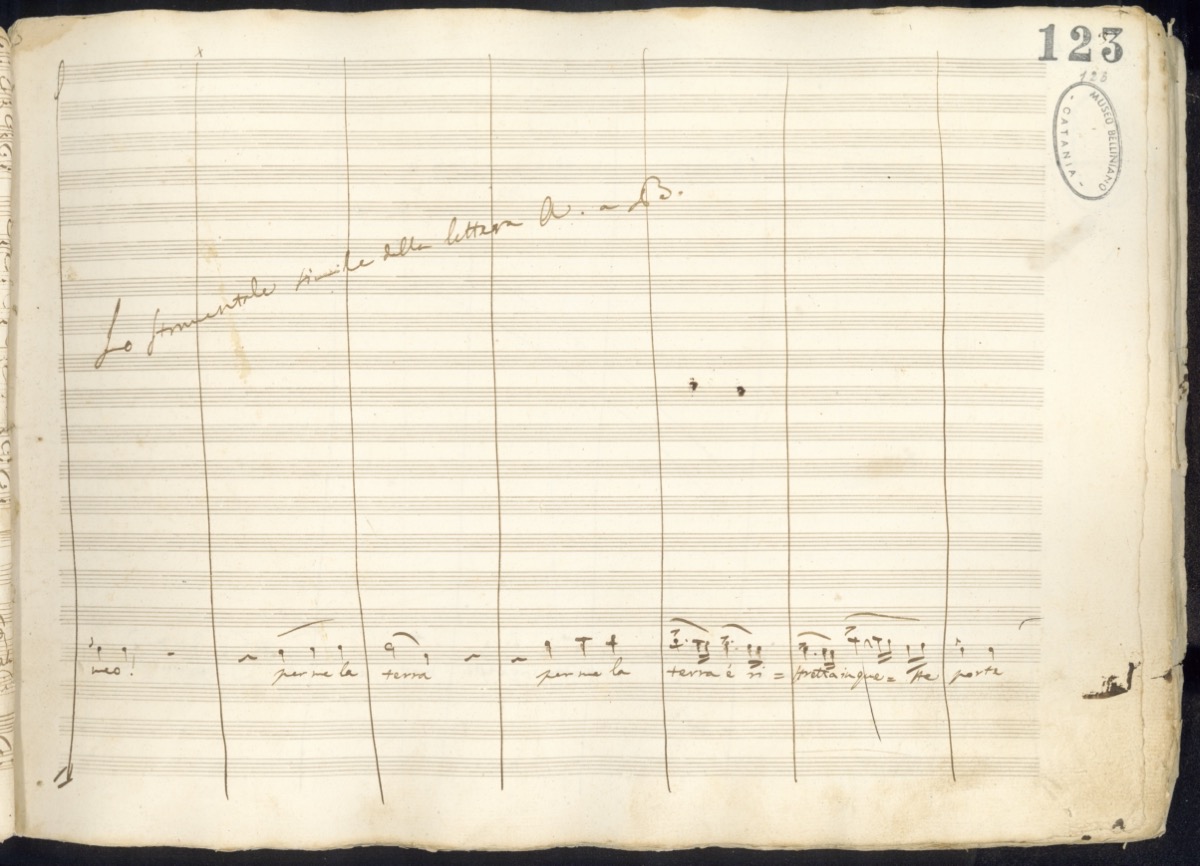 123
123
MUSEO BELLINIANO
- CATANIA -
Lo strumentale simile della lettera A. a B.
meo! per me la terra per me la terra è ri = stretta in que = ste porte